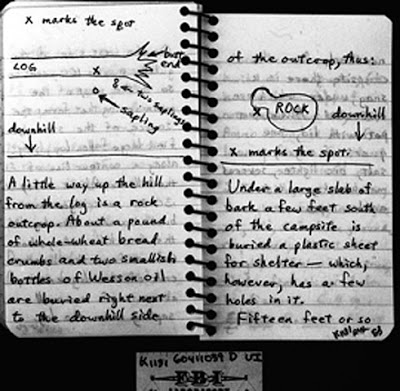 x marks the spot
butt
end
LOG
x
8 ← two saplings
o
sapling
downhill
A little way up the hill
from the log is a rock
outcrop. About a pound
of whole-wheat bread
crumbs and two smallish
bottles of Wesson oil
are buried right next
to the downhill side
of the outcrop, thus:
x ROCK downhill
x marks the spot.
Under a large slab of
bark a few feet south
of the campsite is
buried a plastic sheet
for shelter — which,
however, has a few
holes in it.
Fifteen feet or so
FBI